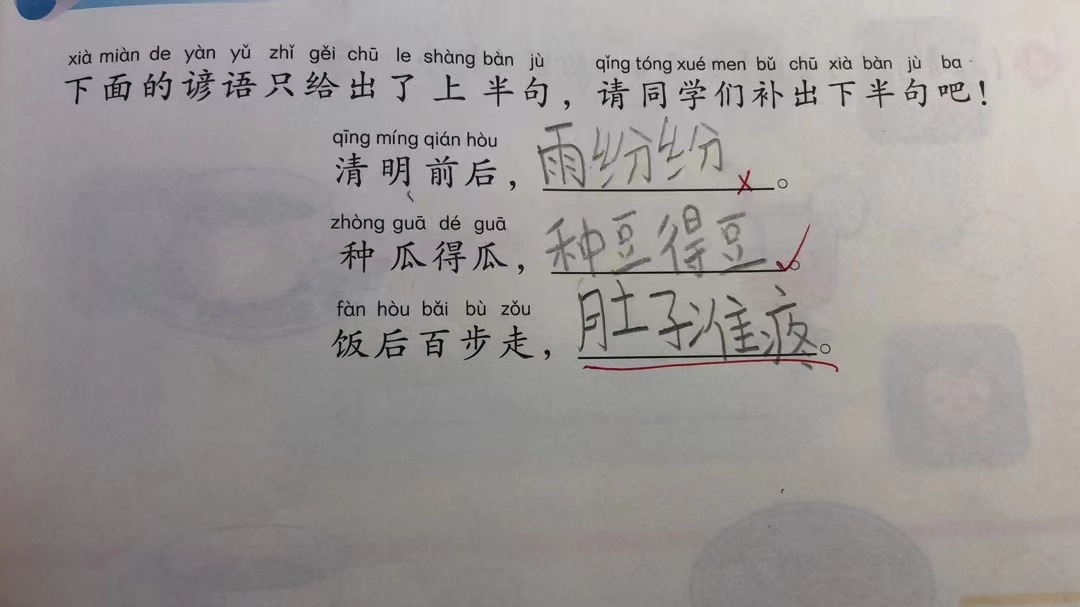 xià miàn de yàn yǔ zhǐ gěi chū le shàng bàn jù qǐng tóng xué men bǔ chū xià bàn jù ba
下面的谚语只给出了上半句，请同学们补出下半句吧！
qīng míng qián hòu
清明前后，雨纷纷。
zhòng guā dé guā
种瓜得瓜，种豆得豆。
fàn hòu bǎi bù zǒu
饭后百步走，肚子准疼。